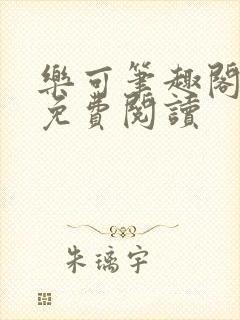 樂可筆趣閣
免費閱讀
朱璃宇